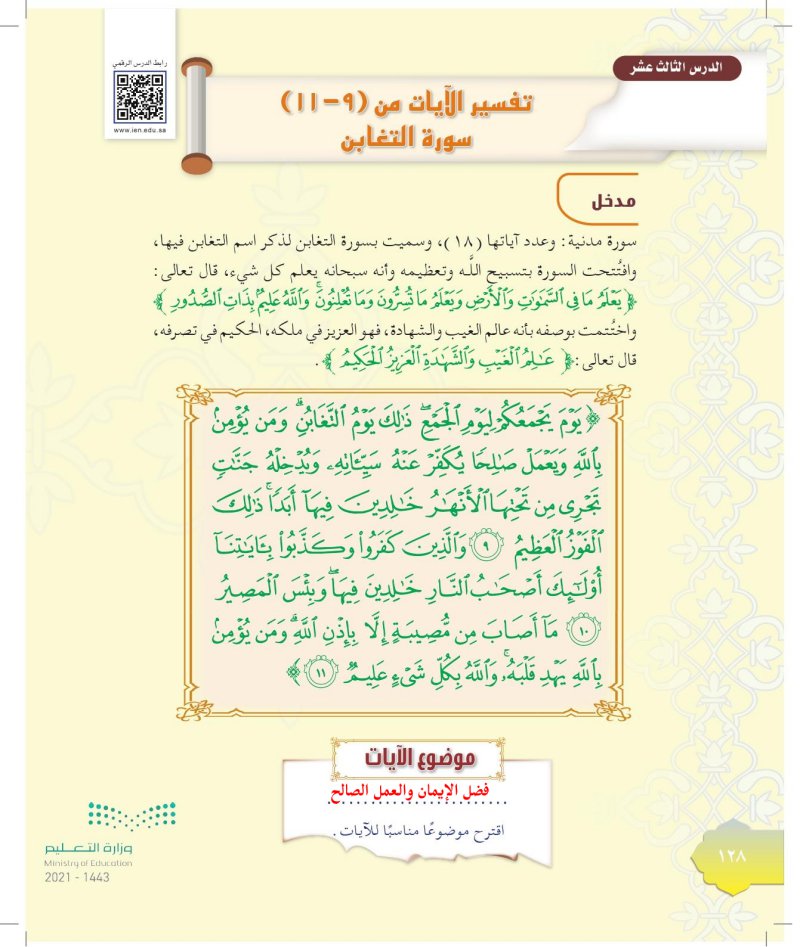 رابط الدرس الرقمي
www.ien.edu.sa
الدرس الثالث عشر
تفسير الآيات من (٩-١١)
سورة التغابن
مدخل
سورة مدنية: وعدد آياتها (١٨)، وسميت بسورة التغابن لذكر اسم التغابن فيها،
وافتُتحت السورة بتسبيح اللَّه وتعظيمه وأنه سبحانه يعلم كل شيء، قال تعالى:
﴿ يَعْلَمُ مَا فِي ٱلسَّمَٰوَٰتِ وَٱلْأَرْضِ وَيَعْلَمُ مَا تُسِرُّونَ وَمَا تُعْلِنُونَ ۚ وَٱللَّهُ عَلِيمٌۢ بِذَاتِ ٱلصُّدُورِ ﴾
واختُتمت بوصفه بأنه عالم الغيب والشهادة، فهو العزيز في ملكه، الحكيم في تصرفه،
قال تعالى: ﴿ عَٰلِمُ ٱلْغَيْبِ وَٱلشَّهَٰدَةِ ٱلْعَزِيزُ ٱلْحَكِيمُ ﴾.
﴿ يَوْمَ يَجْمَعُكُمْ لِيَوْمِ ٱلْجَمْعِ ۖ ذَٰلِكَ يَوْمُ ٱلتَّغَابُنِ ۗ وَمَن يُؤْمِنۢ
بِٱللَّهِ وَيَعْمَلْ صَٰلِحًا يُكَفِّرْ عَنْهُ سَيِّـَٔاتِهِۦ وَيُدْخِلْهُ جَنَّٰتٍ
تَجْرِى مِن تَحْتِهَا ٱلْأَنْهَٰرُ خَٰلِدِينَ فِيهَآ أَبَدًا ۚ ذَٰلِكَ
ٱلْفَوْزُ ٱلْعَظِيمُ ٩ وَٱلَّذِينَ كَفَرُوا۟ وَكَذَّبُوا۟ بِـَٔايَٰتِنَآ
أُو۟لَٰٓئِكَ أَصْحَٰبُ ٱلنَّارِ خَٰلِدِينَ فِيهَا ۖ وَبِئْسَ ٱلْمَصِيرُ
١٠ مَآ أَصَابَ مِن مُّصِيبَةٍ إِلَّا بِإِذْنِ ٱللَّهِ ۗ وَمَن يُؤْمِنۢ
بِٱللَّهِ يَهْدِ قَلْبَهُۥ ۚ وَٱللَّهُ بِكُلِّ شَىْءٍ عَلِيمٌ ١١ ﴾
موضوع الآيات
فضل الإيمان والعمل الصالح
اقترح موضوعًا مناسبًا للآيات.
وزارة التعليم
Ministry of Education
2021 - 1443
١٢٨